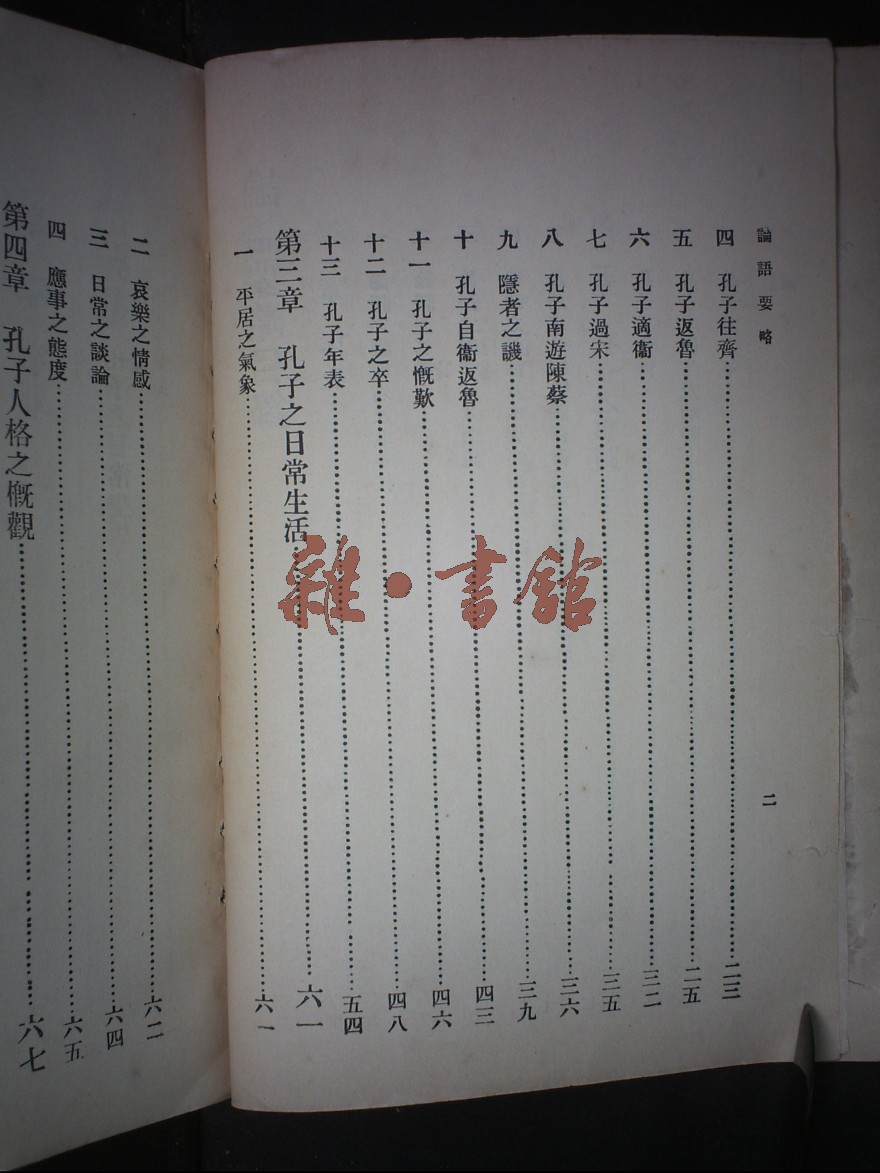 論語要略
二
四 孔子往齊 二三
五 孔子返魯 二五
六 孔子適衞 三二
七 孔子過宋 三五
八 孔子南遊陳蔡 三六
九 隱者之譏 三九
十 孔子自衞返魯 四三
十一 孔子之慨歎 四六
十二 孔子之卒 四八
十三 孔子年表 五四
第三章 孔子之日常生活 六一
一 平居之氣象 六一
二 哀樂之情感 六二
三 日常之談論 六四
四 應事之態度 六五
第四章 孔子人格之慨觀 六七
雜·書館